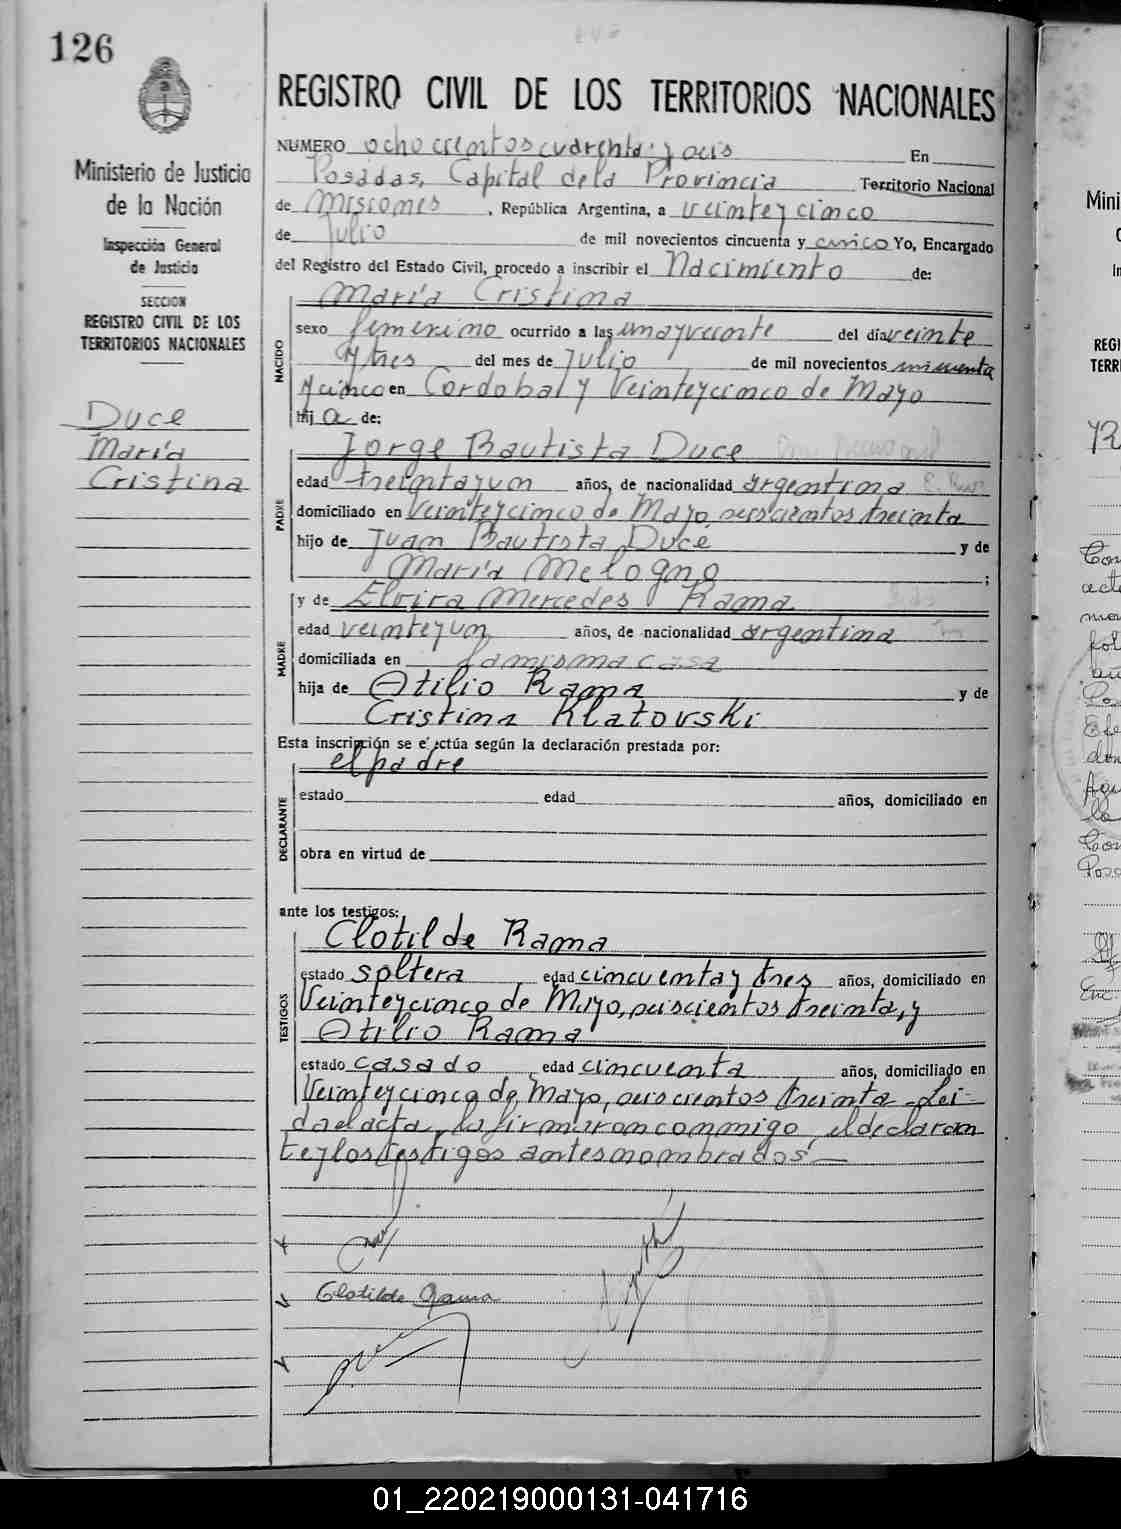 126
Ministerio de Justicia
de la Nación
Inspección General
de Justicia
SECCION
REGISTRO CIVIL DE LOS
TERRITORIOS NACIONALES
Duce
María
Cristina
REGISTRO CIVIL DE LOS TERRITORIOS NACIONALES
NUMERO ochocientos cuarenta y seis En
Posadas, Capital de la Provincia Territorio Nacional
de Misiones, República Argentina, a veinteycinco
de Julio de mil novecientos cincuenta y cinco Yo, Encargado
del Registro del Estado Civil, procedo a inscribir el Nacimiento de:
NACIDO
María Cristina
sexo femenino ocurrido a las unayveinte del día veinte
y tres del mes de Julio de mil novecientos cincuenta
y cinco en Cordoba y Veinteycinco de Mayo
hij a de:
PADRE
Jorge Bautista Duce
edad treintayun años, de nacionalidad argentina
domiciliado en Veinteycinco de Mayo, seiscientos treinta
hijo de Juan Bautista Duce y de
María Melogno;
MADRE
y de Elvira Mercedes Rama
edad veinteyun años, de nacionalidad argentina
domiciliada en la misma casa
hija de Atilio Rama y de
Cristina Klatovski
Esta inscripción se efectúa según la declaración prestada por:
el padre
DECLARANTE
estado edad años, domiciliado en
obra en virtud de
ante los testigos:
TESTIGOS
Clotilde Rama
estado soltera edad cincuenta y tres años, domiciliado en
Veinteycinco de Mayo, seiscientos treinta, y
Atilio Rama
estado casado edad cincuenta años, domiciliado en
Veinteycinco de Mayo, seiscientos treinta - Lei-
da el acta, la firmaron conmigo, el declaran
te y los testigos antes nombrados.—
Clotilde Rama
01_220219000131-041716